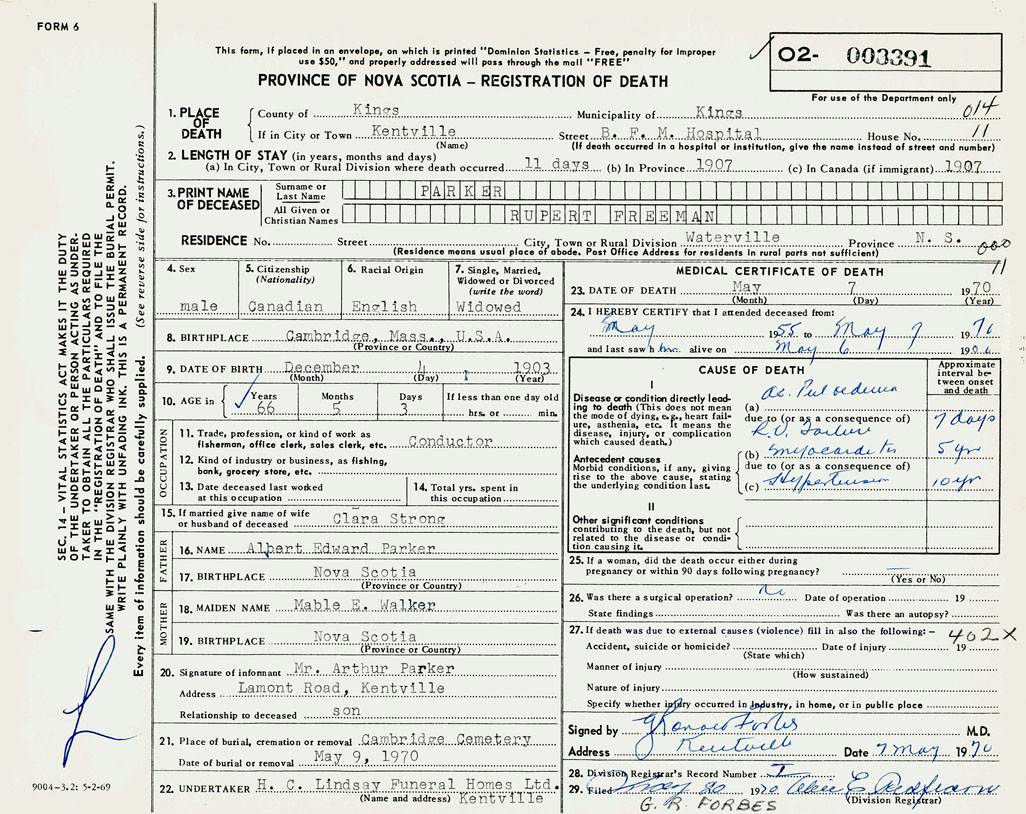 FORM 6
This form, if placed in an envelope, on which is printed "Dominion Statistics – Free, penalty for improper
use $50," and properly addressed will pass through the mail "FREE"
PROVINCE OF NOVA SCOTIA – REGISTRATION OF DEATH
02- 003391
For use of the Department only
014
1. PLACE OF DEATH
County of Kings Municipality of Kings
If in City or Town Kentville Street B. F. M. Hospital House No. 11
(Name) (If death occurred in a hospital or institution, give the name instead of street and number)
2. LENGTH OF STAY (in years, months and days)
(a) In City, Town or Rural Division where death occurred 11 days (b) In Province 1907 (c) In Canada (if immigrant) 1907
3. PRINT NAME OF DECEASED
Surname or Last Name PARKER
All Given or Christian Names RUPERT FREEMAN
RESIDENCE No. Street City, Town or Rural Division Waterville Province N. S.
(Residence means usual place of abode. Post Office Address for residents in rural parts not sufficient)
000
11
4. Sex
male
5. Citizenship
(Nationality)
Canadian
6. Racial Origin
English
7. Single, Married,
Widowed or Divorced
(write the word)
Widowed
8. BIRTHPLACE Cambridge, Mass., U.S.A.
(Province or Country)
9. DATE OF BIRTH December 4 1903
(Month) (Day) (Year)
10. AGE in
Years Months Days If less than one day old
66 5 3 hrs. or min.
OCCUPATION
11. Trade, profession, or kind of work as
fisherman, office clerk, sales clerk, etc. Conductor
12. Kind of industry or business, as fishing,
bank, grocery store, etc.
13. Date deceased last worked
at this occupation
14. Total yrs. spent in
this occupation
15. If married give name of wife
or husband of deceased Clara Strong
FATHER
16. NAME Albert Edward Parker
17. BIRTHPLACE Nova Scotia
(Province or Country)
MOTHER
18. MAIDEN NAME Mable E. Walker
19. BIRTHPLACE Nova Scotia
(Province or Country)
20. Signature of informant Mr. Arthur Parker
Address Lamont Road, Kentville
Relationship to deceased son
21. Place of burial, cremation or removal Cambridge Cemetery
Date of burial or removal May 9, 1970
22. UNDERTAKER H. C. Lindsay Funeral Homes Ltd.
(Name and address) Kentville
MEDICAL CERTIFICATE OF DEATH
23. DATE OF DEATH May 7 1970
(Month) (Day) (Year)
24. I HEREBY CERTIFY that I attended deceased from:
May 1955 to May 7 1970
and last saw him alive on May 6 19
CAUSE OF DEATH
Approximate
interval be-
tween onset
and death
I
Disease or condition directly lead-
ing to death (This does not mean
the mode of dying, e.g., heart fail-
ure, asthenia, etc. It means the
disease, injury, or complication
which caused death.)
(a) ac. Pul oedema
due to (or as a consequence of) 7 days
Failure
Antecedent causes
Morbid conditions, if any, giving
rise to the above cause, stating
the underlying condition last.
(b) myocarditis 5 yr
due to (or as a consequence of)
(c) Hypertension 10 yr
II
Other significant conditions
contributing to the death, but not
related to the disease or condi-
tion causing it.
25. If a woman, did the death occur either during
pregnancy or within 90 days following pregnancy?
(Yes or No)
26. Was there a surgical operation? No Date of operation 19
State findings Was there an autopsy?
27. If death was due to external causes (violence) fill in also the following: – 402X
Accident, suicide or homicide? Date of injury 19
(State which)
Manner of injury
(How sustained)
Nature of injury
Specify whether injury occurred in industry, in home, or in public place
Signed by G Ronald Forbes M.D.
Address Kentville Date 7 May 1970
28. Division Registrar's Record Number
29. Filed 1970
(Division Registrar)
G. R. FORBES
SEC. 14 – VITAL STATISTICS ACT MAKES IT THE DUTY
OF THE UNDERTAKER OR PERSON ACTING AS UNDER-
TAKER TO OBTAIN ALL THE PARTICULARS REQUIRED
IN THE "REGISTRATION OF DEATH" AND TO FILE THE
SAME WITH THE DIVISION REGISTRAR WHO SHALL ISSUE THE BURIAL PERMIT.
WRITE PLAINLY WITH UNFADING INK. THIS IS A PERMANENT RECORD.
Every item of information should be carefully supplied. (See reverse side for instructions.)
9004-3.2: 5-2-69